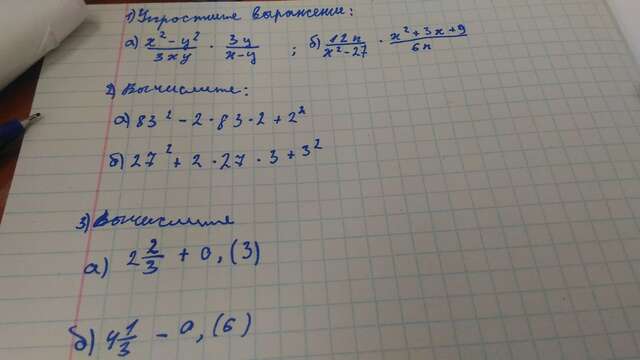 1) Упростите выражение:
а) x² - y² / 3xy · 3y / x - y ; б) 12n / x² - 27 · x² + 3x + 9 / 6n
2) Вычислите:
а) 83² - 2 · 83 · 2 + 2²
б) 27² + 2 · 27 · 3 + 3²
3) Вычислите
а) 2 2/3 + 0,(3)
б) 4 1/3 - 0,(6)